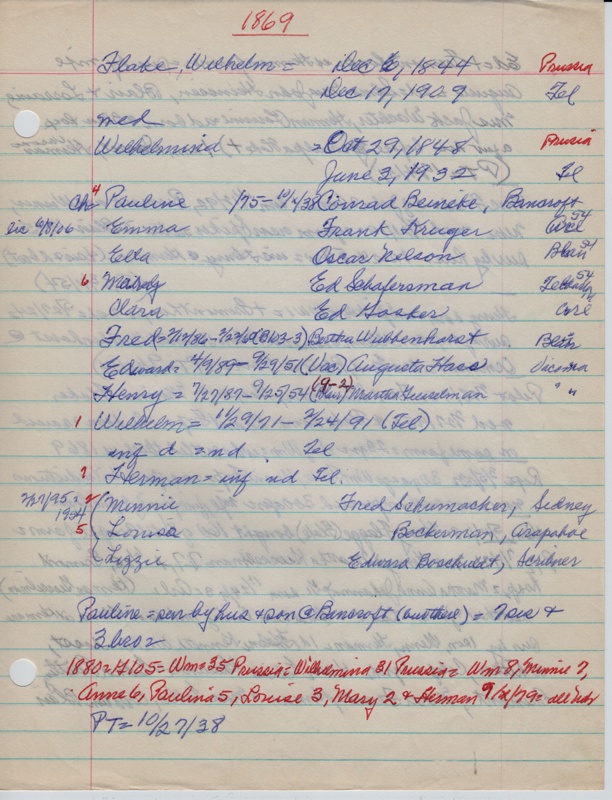 1869
Flake, Wilhelm = Dec 6, 1844 Prussia
Dec 17, 1909 Tel
med
Wilhelmina = Oct 29, 1848 Prussia
June 2, 1932 Tel
ch 4 Pauline /75 - 10/4/38 Conrad Beineke, Bancroft
lic 6/8/06 Emma Frank Kruger 54
Etta Oscar Nelson Blair 51
6 Ed Schafersman 54
Clara Ed Gosker
Fred = (B103-3) Bertha Wulbenhorst Blair
Edward = 4/9/89 - 9/29/51 (Vac) Augusta Hass
Henry = 7/27/87 - 9/25/54 (9-2) " "
1 Wilhelm = 11/29/71 - 2/24/91 (Tel)
inf d = nd. Tel
7 Herman = inf nd Tel.
2 (Minnie Fred Schumacher, Sidney
5 Louisa Bockerman, Arapahoe
Lizzie Edward Boschuldt, Scribner
Pauline = sur by hus & son @ Bancroft = 7 sis &
3 bro =
1880 = 17/05 = Wm = 35 Prussia = Wilhelmina 31 Prussia = Wm 8, Minnie 7,
Anna 6, Paulina 5, Louise 3, Mary 2 & Herman = all Neb
PT = 10/27/38